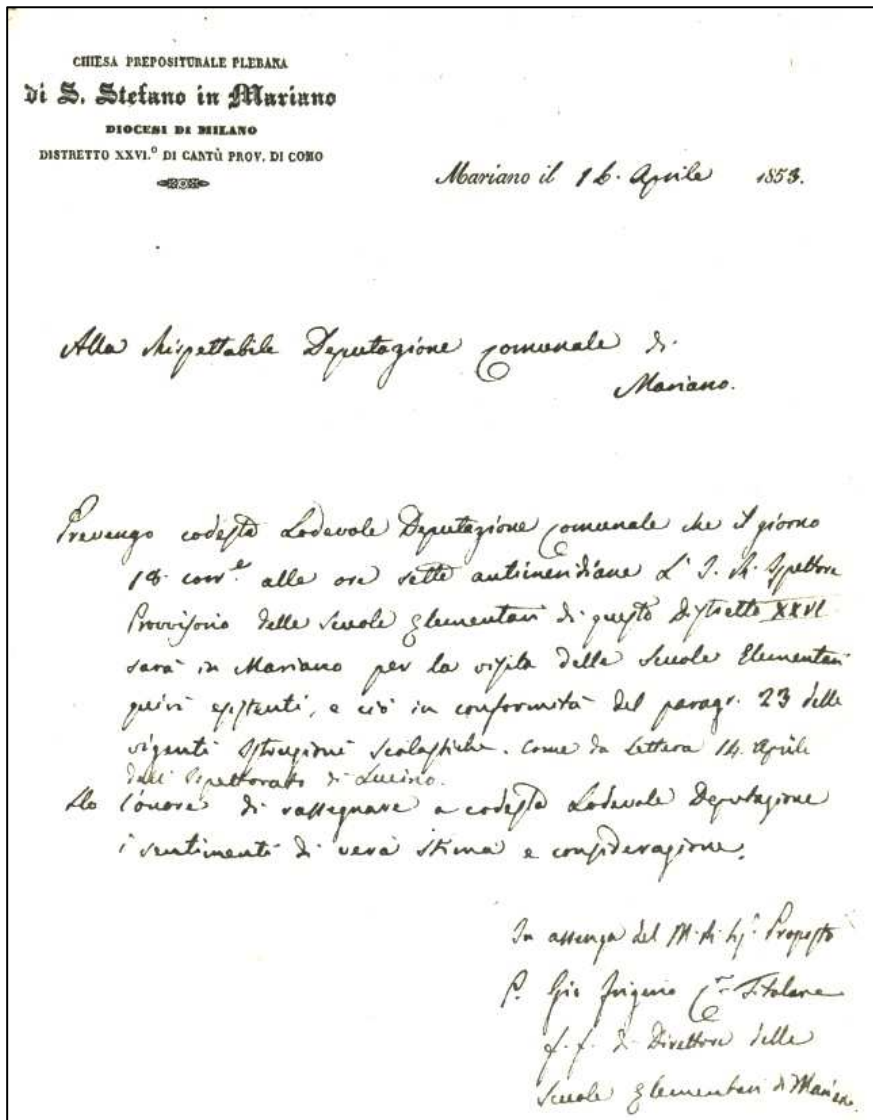 CHIESA PREPOSITURALE PLEBANA
di S. Stefano in Mariano
DIOCESI DI MILANO
DISTRETTO XXVI.º DI CANTÙ PROV. DI COMO
Mariano il 16. Aprile 1853.
Alla Rispettabile Deputazione Comunale di
Mariano.
Prevengo codesta Lodevole Deputazione Comunale che il giorno
18 corr.e alle ore sette antimeridiane L'I. R. Ispettore
Provvisorio delle Scuole Elementari di questo Distretto XXVI
sarà in Mariano per la visita delle Scuole Elementari
quivi esistenti, e ciò in conformità del paragr. 23 delle
vigenti Istruzioni Scolastiche. Come da Lettera 14. Aprile
dall'Ispettorato di Lucino.
Ho l'onore di rassegnare a codesta Lodevole Deputazione
i sentimenti di vera stima e considerazione.
In assenza del M. R. Sig. Proposto
P. Gio Frigerio Titolare
f. f. di Direttore delle
Scuole Elementari di Mariano.